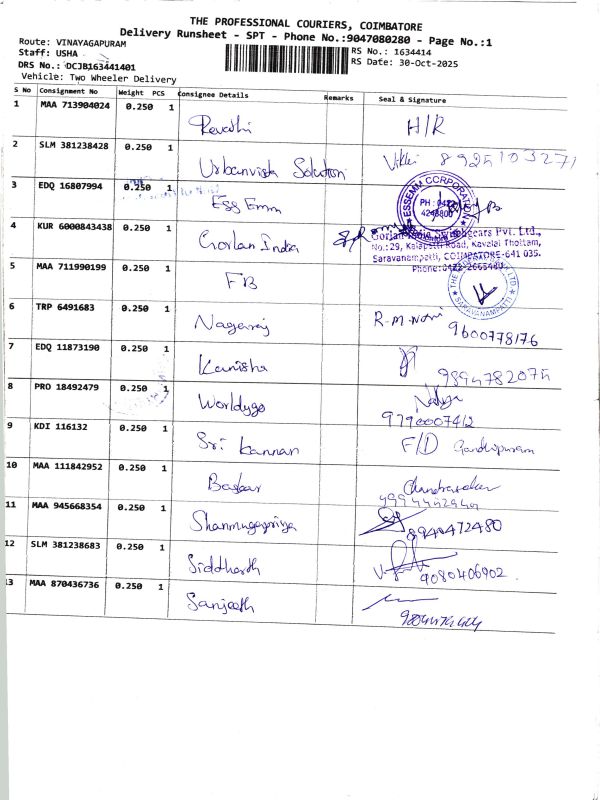 THE PROFESSIONAL COURIERS, COIMBATORE
Delivery Runsheet - SPT - Phone No.:9047080280 - Page No.:1
Route: VINAYAGAPURAM
RS No.: 1634414
Staff: USHA
RS Date: 30-Oct-2025
DRS No.: DCJB163441401
Vehicle: Two Wheeler Delivery
S No Consignment No Weight PCS Consignee Details Remarks Seal & Signature
1 MAA 713904024 0.250 1 Revathi H/R
2 SLM 381238428 0.250 1 Urbanvista Solution Vikki 8925103271
3 EDQ 16807994 0.250 1 Ess Emm
ESSEMM CORPORATION
PH : 0422
4 KUR 6000843438 0.250 1 Gorlan India
Pvt. Ltd.,
No.:29, Kalapatti Road, Kavalai Thottam,
Saravanampatti, COIMBATORE-641 035.
5 MAA 711990199 0.250 1 FB
SARAVANAMPATTI
6 TRP 6491683 0.250 1 Nagaraj 9600778176
7 EDQ 11873190 0.250 1 Kanisha 9894782075
8 PRO 18492479 0.250 1 Worldygo
9790007412
9 KDI 116132 0.250 1 Sri Kannan F/D Gandhipuram
10 MAA 111842952 0.250 1 Baskar Chandrasekar
11 MAA 945668354 0.250 1 Shanmugapriya 8940472480
12 SLM 381238683 0.250 1 Siddharth 9080406902
13 MAA 870436736 0.250 1 Sanjeeth